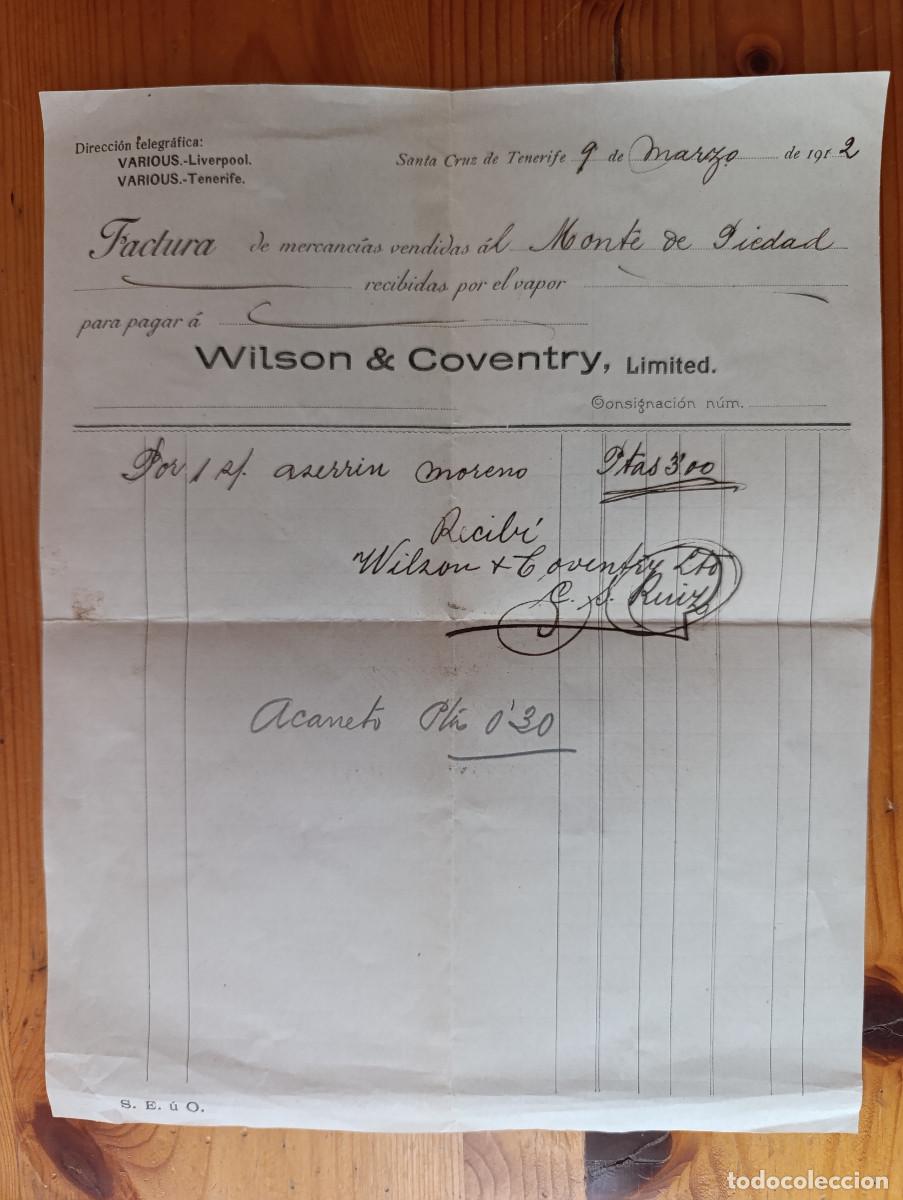 Dirección telegráfica:
VARIOUS.-Liverpool.
VARIOUS.-Tenerife.
Santa Cruz de Tenerife 9 de Marzo de 1912
Factura de mercancías vendidas ál Monte de Piedad
recibidas por el vapor
para pagar á
Wilson & Coventry, Limited.
Consignación núm.
Por 1 s/. aserrin moreno Ptas 3'00
Recibí
Wilson & Coventry Ltd
C. S. Ruiz
Acarreto Ptas 0'30
S. E. ú O.
todocoleccion